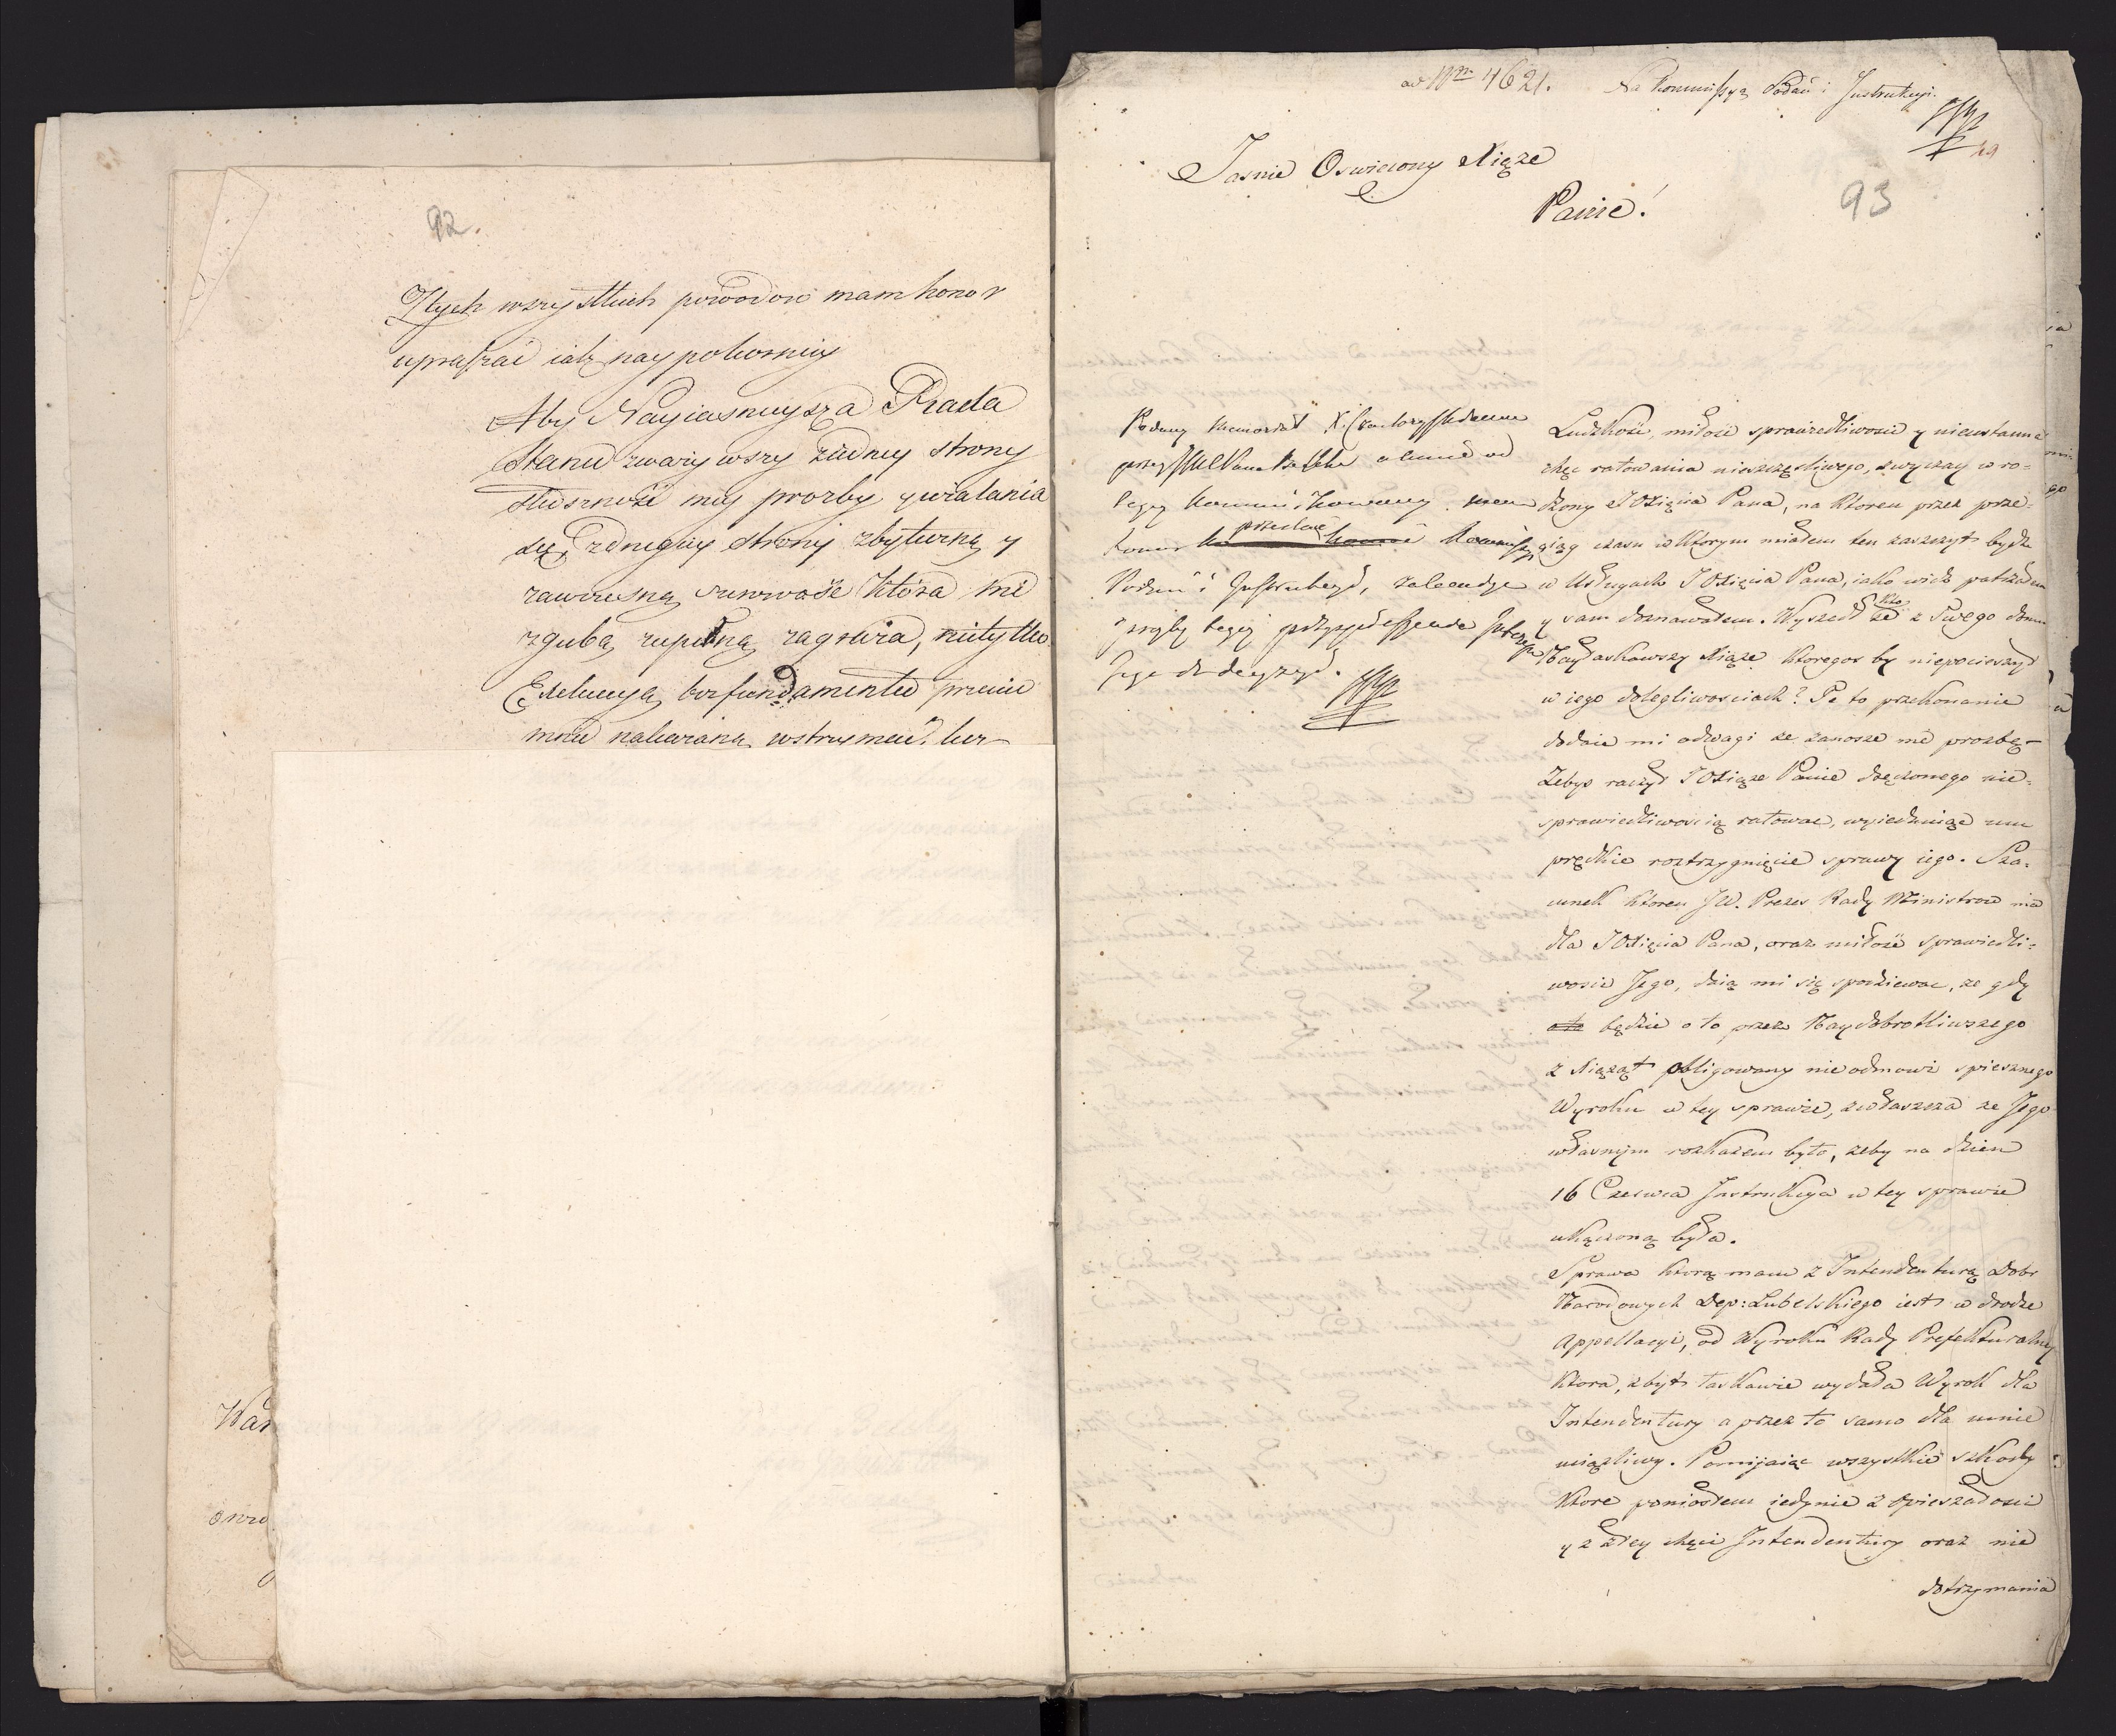 92.
Z tych wszystkich powodow mam honor
upraszać iak naypokorniey
Aby Nayiasnieysza Rada
Stanu zważywszy z iedney strony
słuszność mey prozby y uzalania
się, z drugiey strony zbyteczną y
zawczesną surowość która mi
zgubą zupełną zagraża, nietylko
Exekucyą bez fundamentu przeciw
mnie nakazaną wstrzymać, lecz
War
ad Nrm 4621. Na Kommissyą Podań i Instrukcyi.
49
93
Jasnie Oswiecony Xiąze
Panie!
Podany memoriał X. Czartoryskiemu
przez od
tegoż kommunikowany mam
honor przesłać Kommissyi
Podań i Instrukcyi, zalecając
iego do decyzyi.
Ludzkość, miłość sprawiedliwości y nieustanna
chęc ratowania nieszczęsliwego, zwyczay wro-
dzony JOXięcia Pana, na ktoren przez prze-
ciąg czasu w ktorym miałem ten zaszczyt bydź
w Usługach JOXięcia Pana, iako widz patrzałem
y sam doznawałem. Wyszedł że kto z Swego domu
Nayłaskawszy Xiąze ktoregos by niepocieszył
w iego dolegliwosciach? Te to przekonanie
dodaie mi odwagi ze zanosze me prozbę
Zebys raczył JOXiąze Panie dręczonego nie-
sprawiedliwoscią ratowac, wyiednaiąc mu
prędkie roztrzygnięcie sprawy iego. Sza-
cunek ktoren JW. Prezes Rady Ministrow ma
dla JOXięcia Pana, oraz miłość sprawiedli-
wosci Jego, daią mi się spodziewac, ze gdy
oto będzie o to przez Naydobrotliwszego
z Xiąząt obligowany nie odmowi spiesznego
Wyroku w tey sprawie, zwłaszcza ze Jego
własnym rozkazem było, zeby na dzien
16 Czerwca Instrukcya w tey sprawie
ukączoną była.
Sprawa ktorą mam z Intendenturą Dobr
Narodowych Dep: Lubelskiego iest w drodze
Appellacyi, od Wyroku Rady Prefekturalney
ktora, zbyt łaskawie wydała Wyrok dla
Intendentury a przez to samo dla mnie
uciążliwy. Pomijaiąc wszystkie szkody
ktore poniosłem jedynie z opieszałosci
y z złey chęci Intendentury oraz nie
dotrzymania